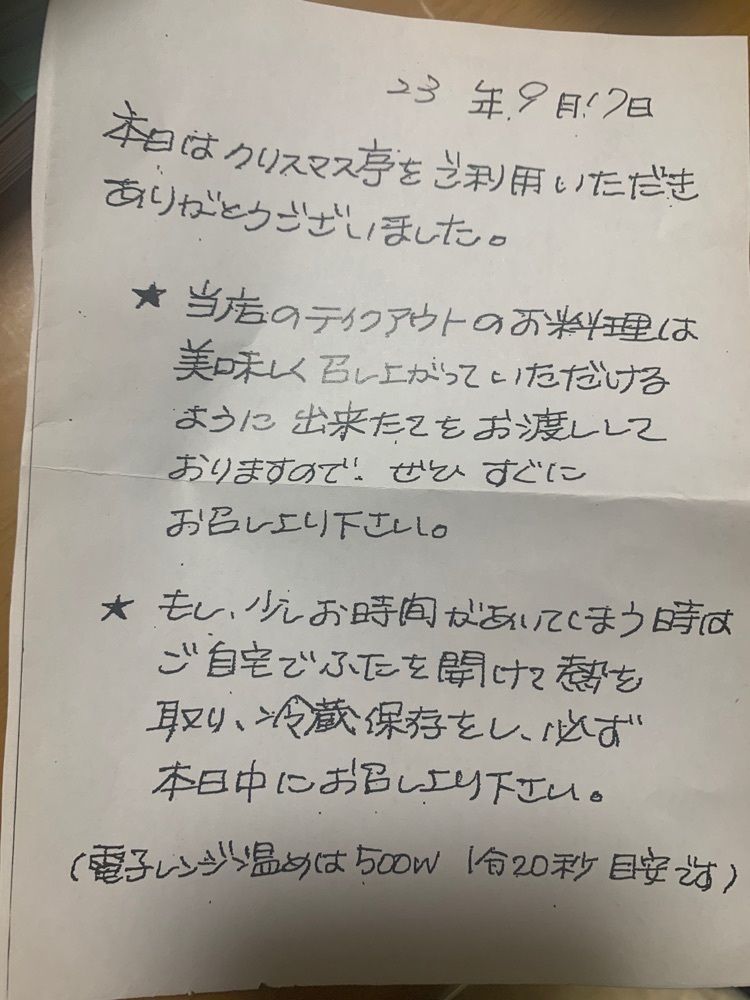 23 年 9月17日
本日はクリスマス亭をご利用いただき
ありがとうございました。
★ 当店のテイクアウトのお料理は
美味しく召し上がっていただける
ように 出来たてをお渡しして
おりますので、ぜひ すぐに
お召し上り下さい。
★ もし、少しお時間があいてしまう時は
ご自宅でふたを開けて熱を
取り、冷蔵保存をし、必ず
本日中にお召し上り下さい。
(電子レンジ温めは500W 1分20秒 目安です)